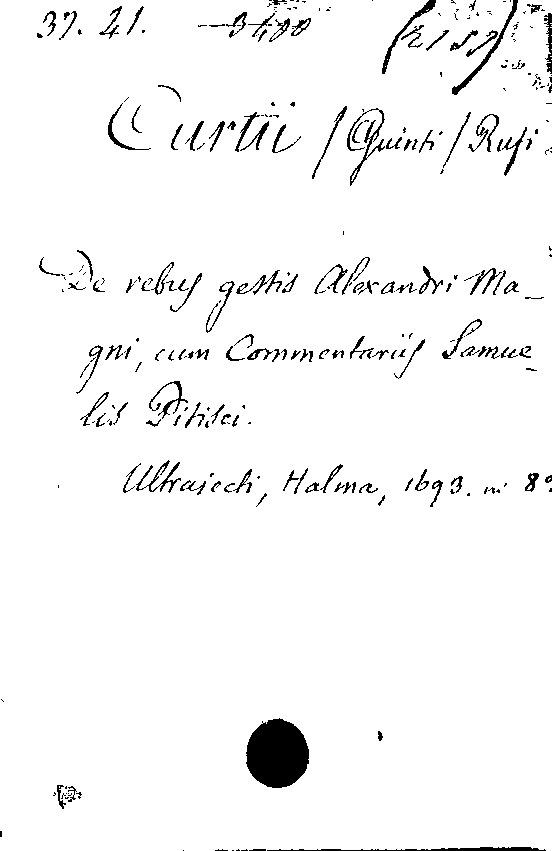 37. 21. 3400 (2152)
Curtii / Quinti / Rufi
De rebus gestis Alexandri Ma_
gni, cum Commentariis Samue_
lis Pitisci.
Ultrajecti, Halma, 1693. in 8º